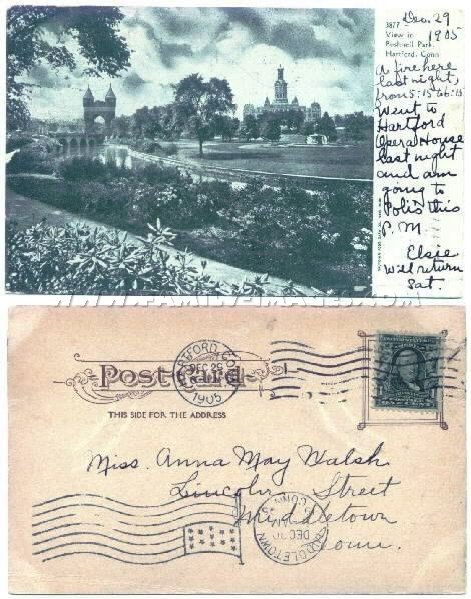 3877
View in
Bushnell Park,
Hartford, Conn
Dec. 29
1905
A fire here
last night,
from 5:15 to 6:15
Went to
Hartford
Opera House
last night
and am
going to
Polis this
P. M
Elsie
Will return
Sat.
Post Card
THIS SIDE FOR THE ADDRESS
HARTFORD, CO
DEC 30
1905
Miss. Anna May Walsh
Lincoln Street
Middletown
Conn.
MIDDLETOWN
CONN.
DEC 30